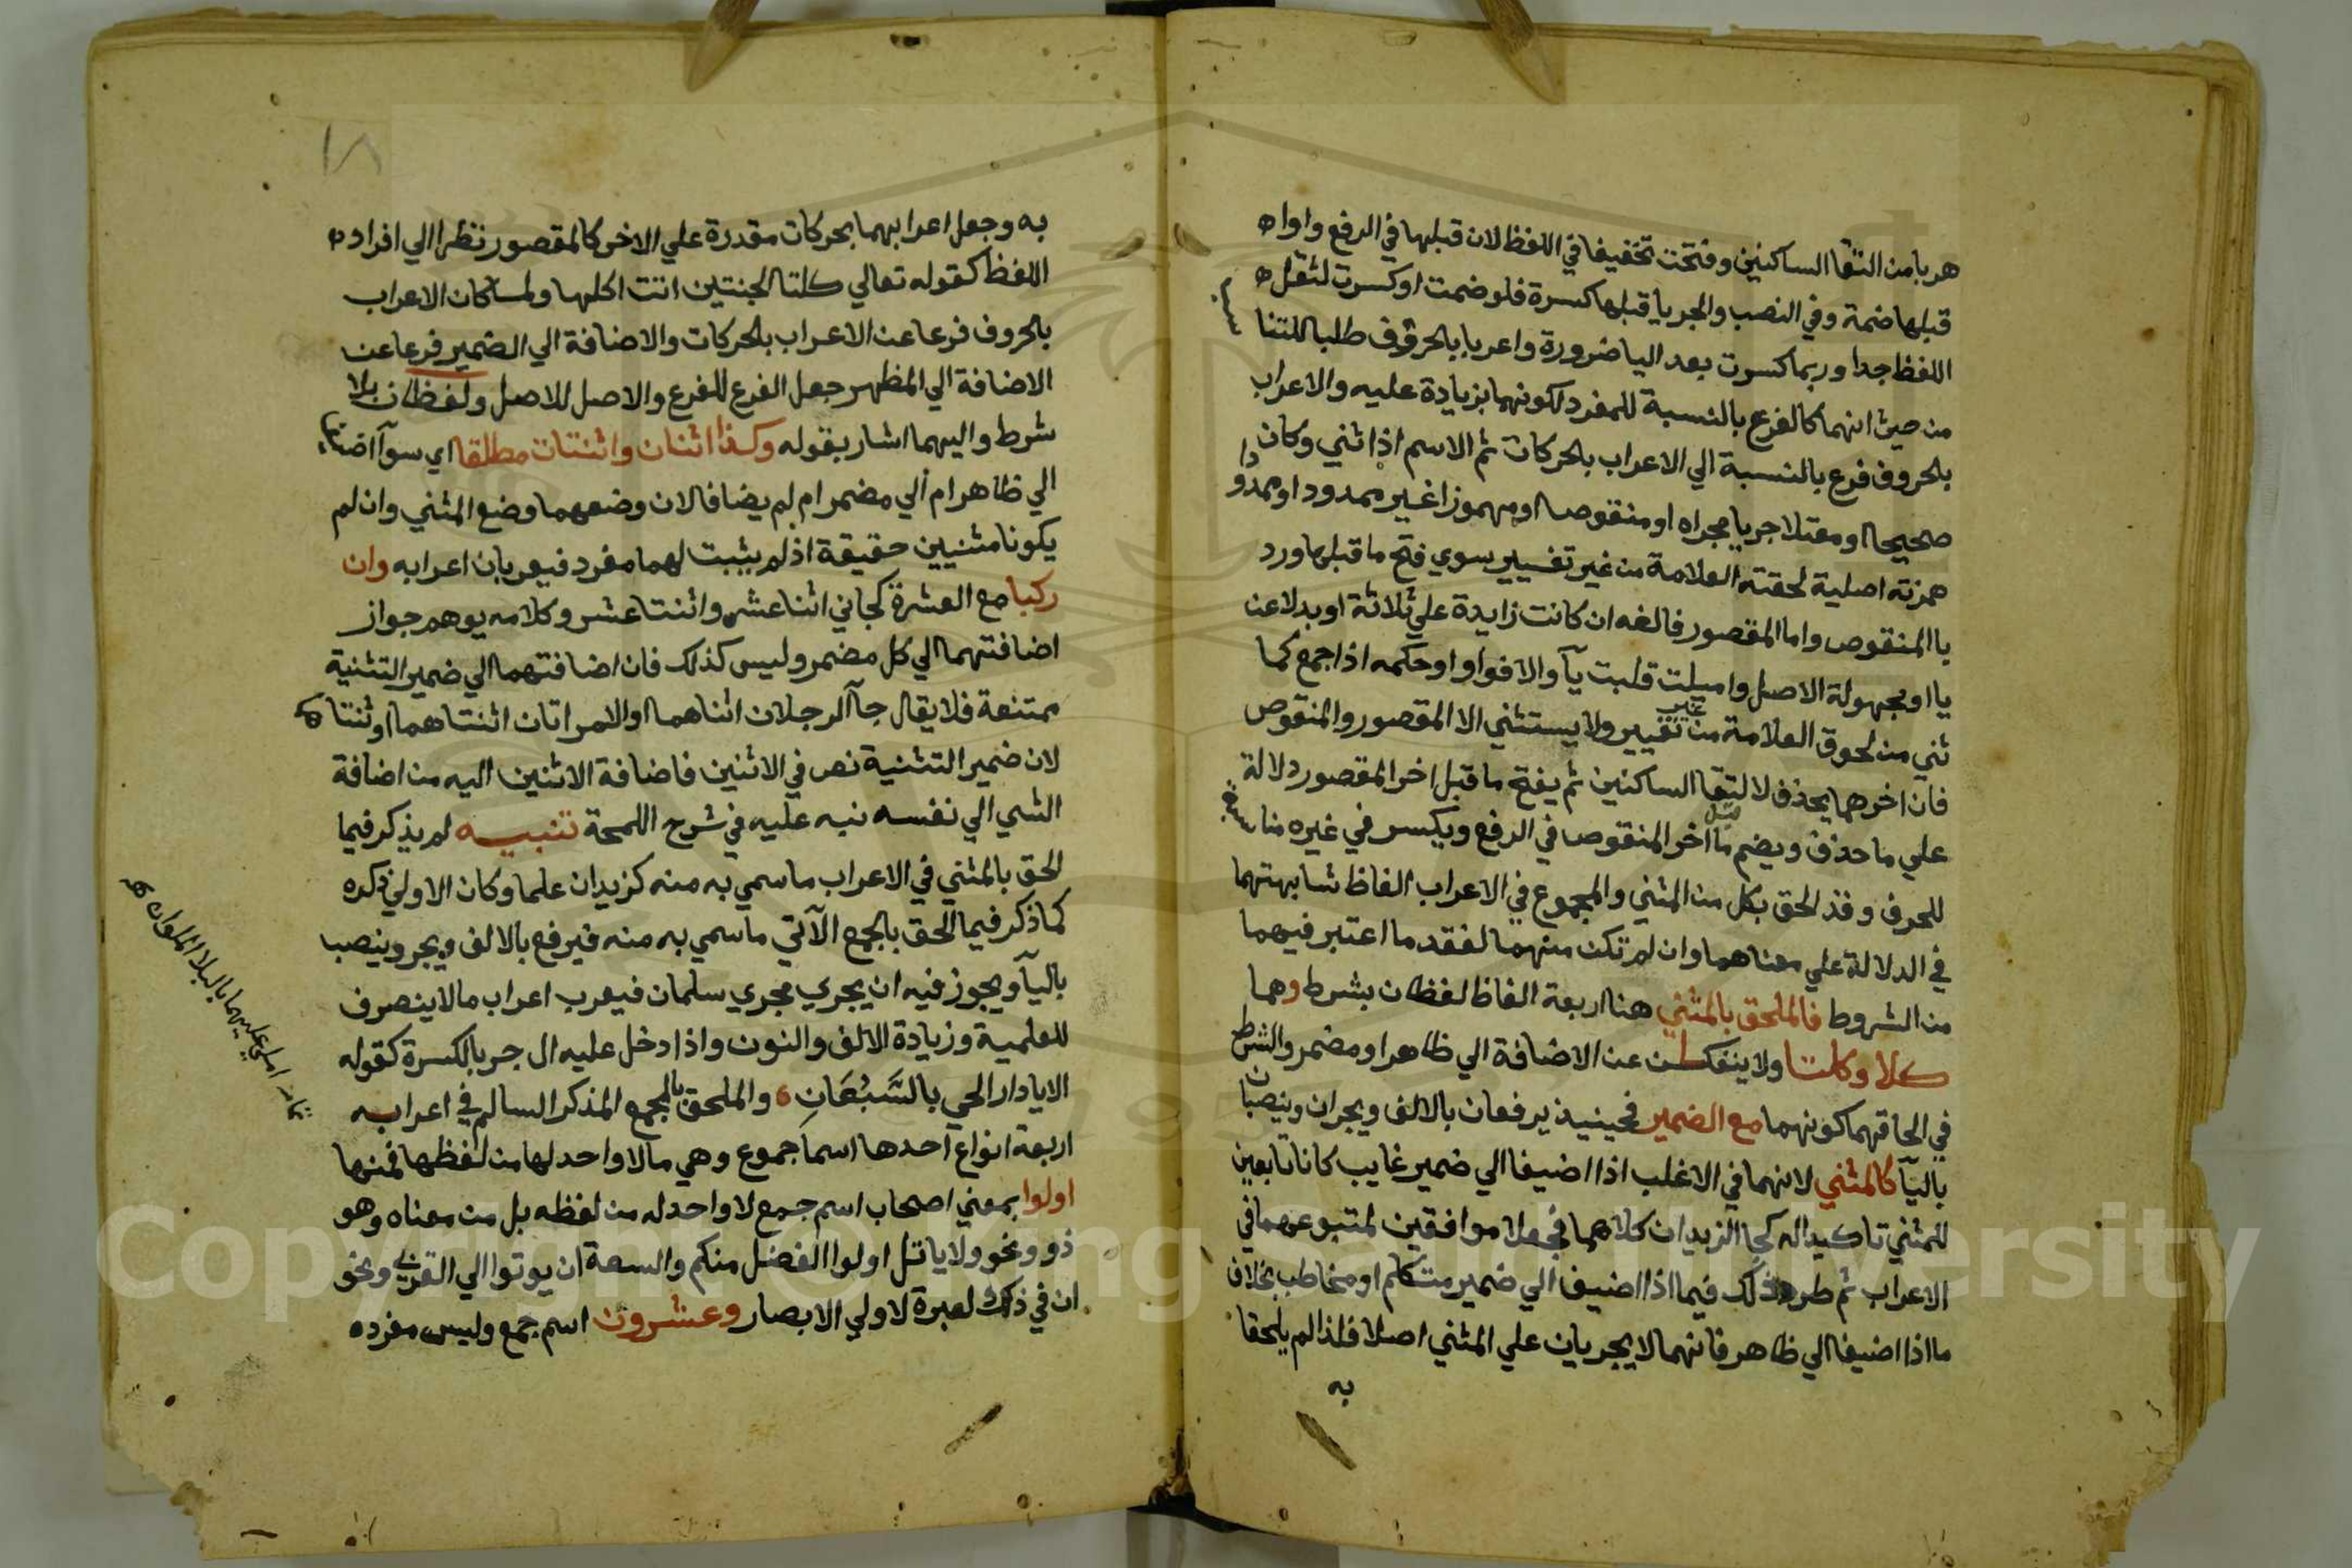 هربا من التقا الساكنين وفتحت تخفيفا في اللفظ لان قبلها في الرفع واواه
قبلها ضمة وفي النصب والجر يا قبلها كسرة فلو ضمت او كسرت لثقل ه
اللفظ جدا وربما كسرت بعد اليا ضرورة واعربا بالحروف طلبا للتنا سب
من حيث انهما كالفرع بالنسبة للمفرد لكونهما بزيادة عليه والاعراب
بالحروف فرع بالنسبة الي الاعراب بالحركات ثم الاسم اذا ثني وكان
صحيحا او معتلا جريا مجراه او منقوصا او مهموزا غير ممدود او ممدودا
همزته اصلية لحقته العلامة من غير تغيير سوي فتح ما قبلها ورد
يا المنقوص واما المقصور فالفه ان كانت زايدة علي ثلاثة او بدلا عن
يا او مجهولة الاصل واميلت قلبت يآ والا فواوا وحكمه اذا جمع كما
ثني من لحوق العلامة من غير تغيير ولا يستثني الا المقصور والمنقوص
فان اخرهما يحذف لالتقا الساكنين ثم يفتح ما قبل اخر المقصور دلالة
علي ما حذف ويضم ما قبل اخر المنقوص في الرفع ويكسر في غيره مناسبة
للحرف وقد الحق بكل من المثني والمجموع في الاعراب الفاظ شابهتهما
في الدلالة علي معناهما وان لم تكن منهما لفقد ما اعتبر فيهما
من الشروط فالملحق بالمثني هنا اربعة الفاظ لفظان بشرط وهما
كلا وكلتا ولا ينفكان عن الاضافة الي ظاهر او مضمر والشرط
في الحاقهما كونهما مع الضمير فحينيذ يرفعان بالالف ويجران وينصبان
باليآ كالمثني لانهما في الاغلب اذا اضيفا الي ضمير غايب كانا تابعين
للمثني تاكيدا له كجا الزيدان كلاهما فجعلا موافقين لمتبوعهما في
الاعراب ثم طرد ذلك فيما اذا اضيف الي ضمير متكلم او مخاطب بخلاف
ما اذا اضيفا الي ظاهر فانهما لا يجريان علي المثني اصلا فلذا لم يلحقا
به
١٨
به وجعل اعرابهما بحركات مقدرة علي الاخر كالمقصور نظرا الي افراد ه
اللفظ كقوله تعالي كلتا الجنتين اتت اكلها ولما كان الاعراب
بالحروف فرعا عن الاعراب بالحركات والاضافة الي الضمير فرعا عن
الاضافة الي المظهر جعل الفرع للفرع والاصل للاصل ولفظان بلا
شرط واليهما اشار بقوله وكذا اثنان واثنتان مطلقا اي سوآ اضيفا
الي ظاهر ام الي مضمر ام لم يضافا لان وضعهما وضع المثني وان لم
يكونا مثنيين حقيقة اذ لم يثبت لهما مفرد فيعربان اعرابه وان
ركبا مع العشرة كجاني اثنا عشر واثنتا عشر وكلامه يوهم جواز
اضافتهما الي كل مضمر وليس كذلك فان اضافتهما الي ضمير التثنية
ممتنعة فلا يقال جآ الرجلان اثناهما والامراتان اثنتاهما او ثنتاهما
لان ضمير التثنية نص في الاثنين فاضافة الاثنين اليه من اضافة
الشي الي نفسه نبه عليه في شرح اللمحة تنبيه لم يذكر فيما
الحق بالمثني في الاعراب ما سمي به منه كزيدان علما وكان الاولي ذكره
كما ذكر فيما الحق بالجمع الآتي ما سمي به منه فيرفع بالالف ويجر وينصب
باليآ ويجوز فيه ان يجري مجري سلمان فيعرب اعراب ما لا ينصرف
للعلمية وزيادة الالف والنون واذا دخل عليه ال جر بالكسرة كقوله
الا يا دار الحي بالسَّبُعَانِ والملحق بالجمع المذكر السالم في اعرابه
اربعة انواع احدها اسما جموع وهي ما لا واحد لها من لفظها فمنها
اولوا بمعني اصحاب اسم جمع لا واحد له من لفظه بل من معناه وهو
ذو ونحو ولا ياتل اولوا الفضل منكم والسعة ان يوتوا الي القربي ونحو
ان في ذلك لعبرة لاولي الابصار وعشرون اسم جمع وليس مفرده
تمامه املي عليها بالبلا الملوان ه
Copyright © King Saud University